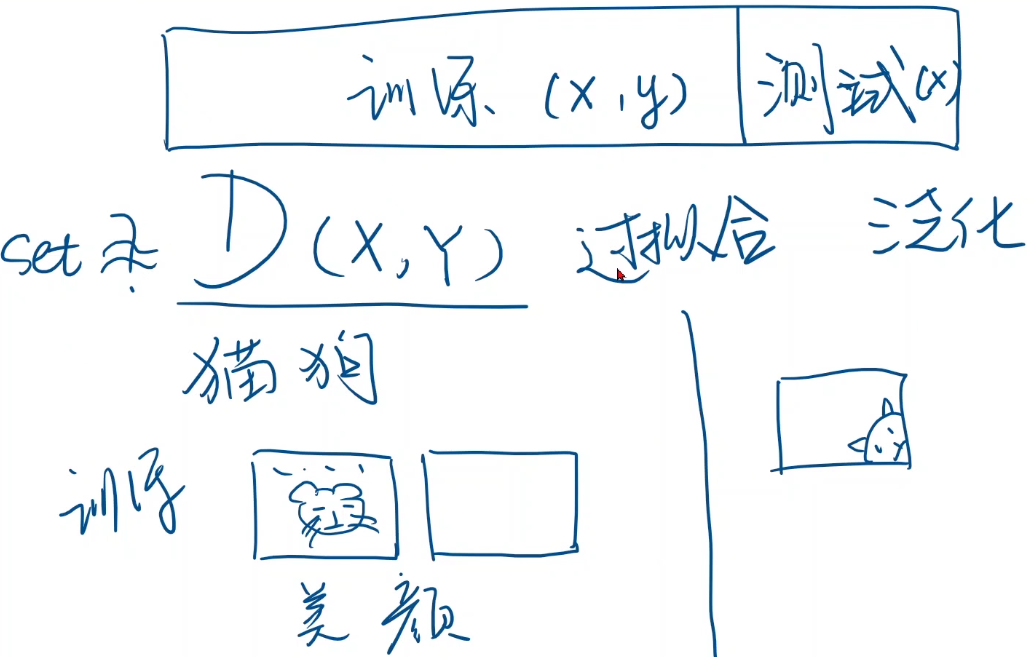 训练 (x,y) 测试(x)
set D(X,Y) 过拟合 泛化
猫狗
训练
美颜